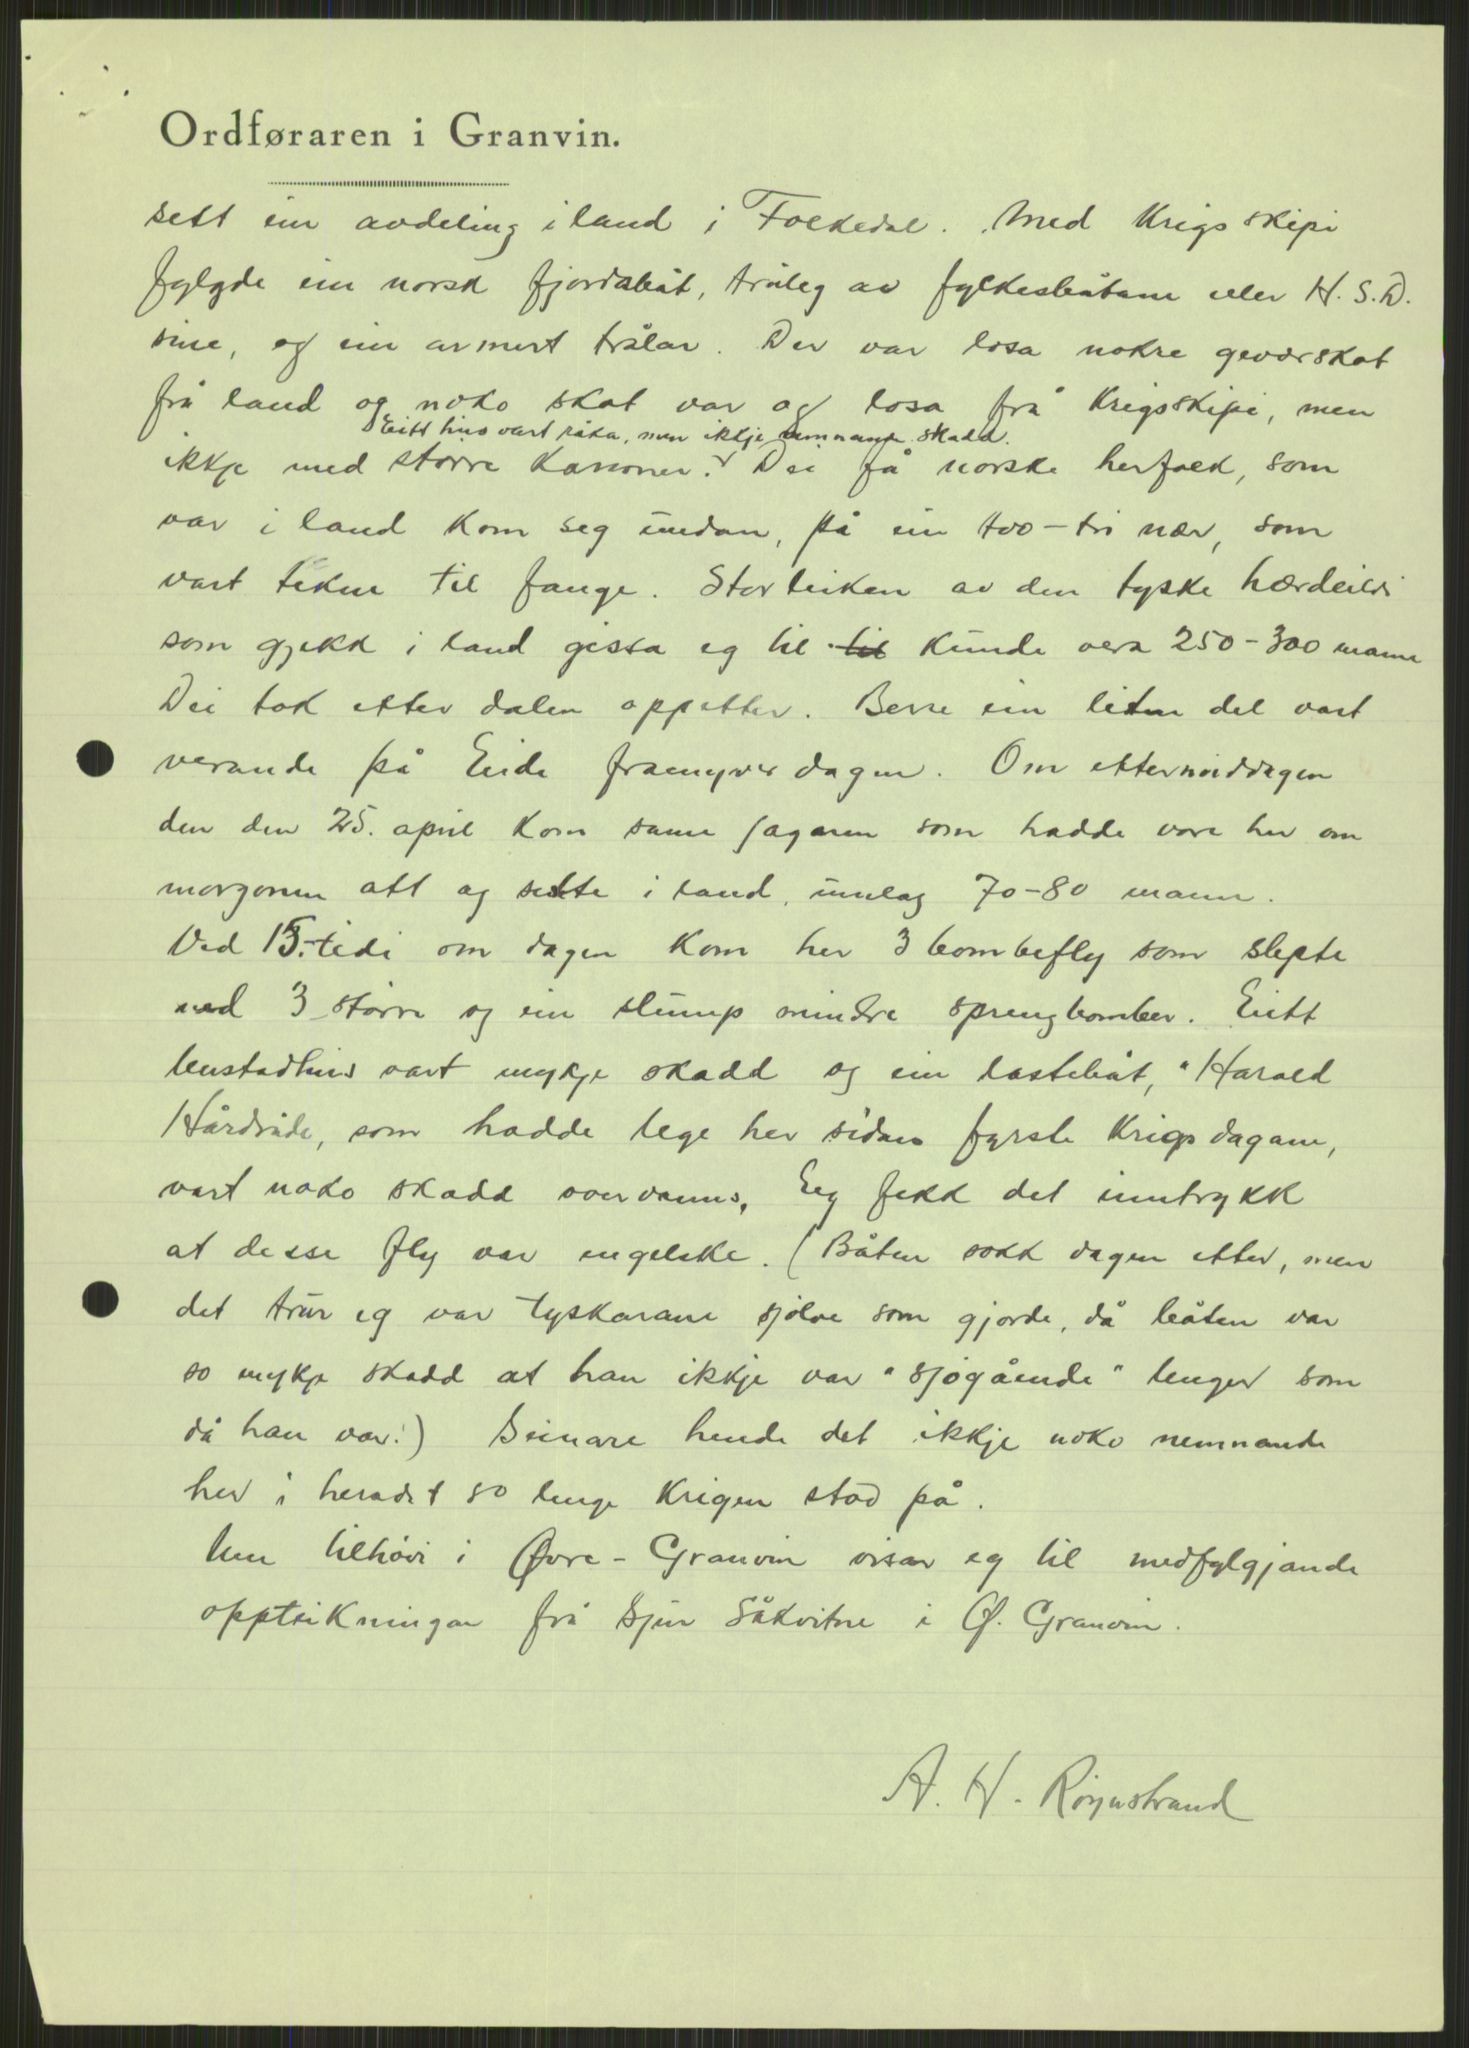 Ordføraren i Granvin.
sett ein avdeling i land i Folkedal. Med krigsskipi
fylgde ein norsk fjordabåt, truleg av fylkesbåtane eller H.S.D.
sine, og ein armert trålar. Der var losa nokre geværskot
frå land og noko skot var og losa frå krigsskipi, men
Eitt hus vart råka, men ikkje nemnande skadd.
ikkje med større kanoner. Dei få norske herfolk, som
var i land kom seg undan, på ein tvo-tri nær, som
vart tekne til fange. Storleiken av den tyske hærdeildi
som gjekk i land gissa eg til til kunde vera 250-300 mann
Dei tok etter dalen oppetter. Berre ein liten del vart
verande på Eide framyver dagen. Om ettermiddagen
den den 25. april kom same jagaren som hadde vore her om
morgonen att og sette i land umlag 70-80 mann.
Ved 15-tidi om dagen kom her 3 bombefly som slepte
ned 3 større og ein slump mindre sprengbomber. Eitt
bustadhus vart mykje skadd og ein lastebåt, "Harald
Hårdråde, som hadde lege her sidan fyrste krigsdagane,
vart noko skadd overvanns. Eg fekk det inntrykk
at desse fly var engelske. (Båten sokk dagen etter, men
det trur eg var tyskarane sjølve som gjorde, då båten var
so mykje skadd at han ikkje var "sjøgåande" lenger som
då han var.) Seinare hende det ikkje noko nemnande
her i heradet so lenge krigen stod på.
Um tilhøvi i Øvre-Granvin visar eg til medfylgjande
oppteikningar frå Sjur Såkvitne i Ø. Granvin.
A. H. Røynstrand